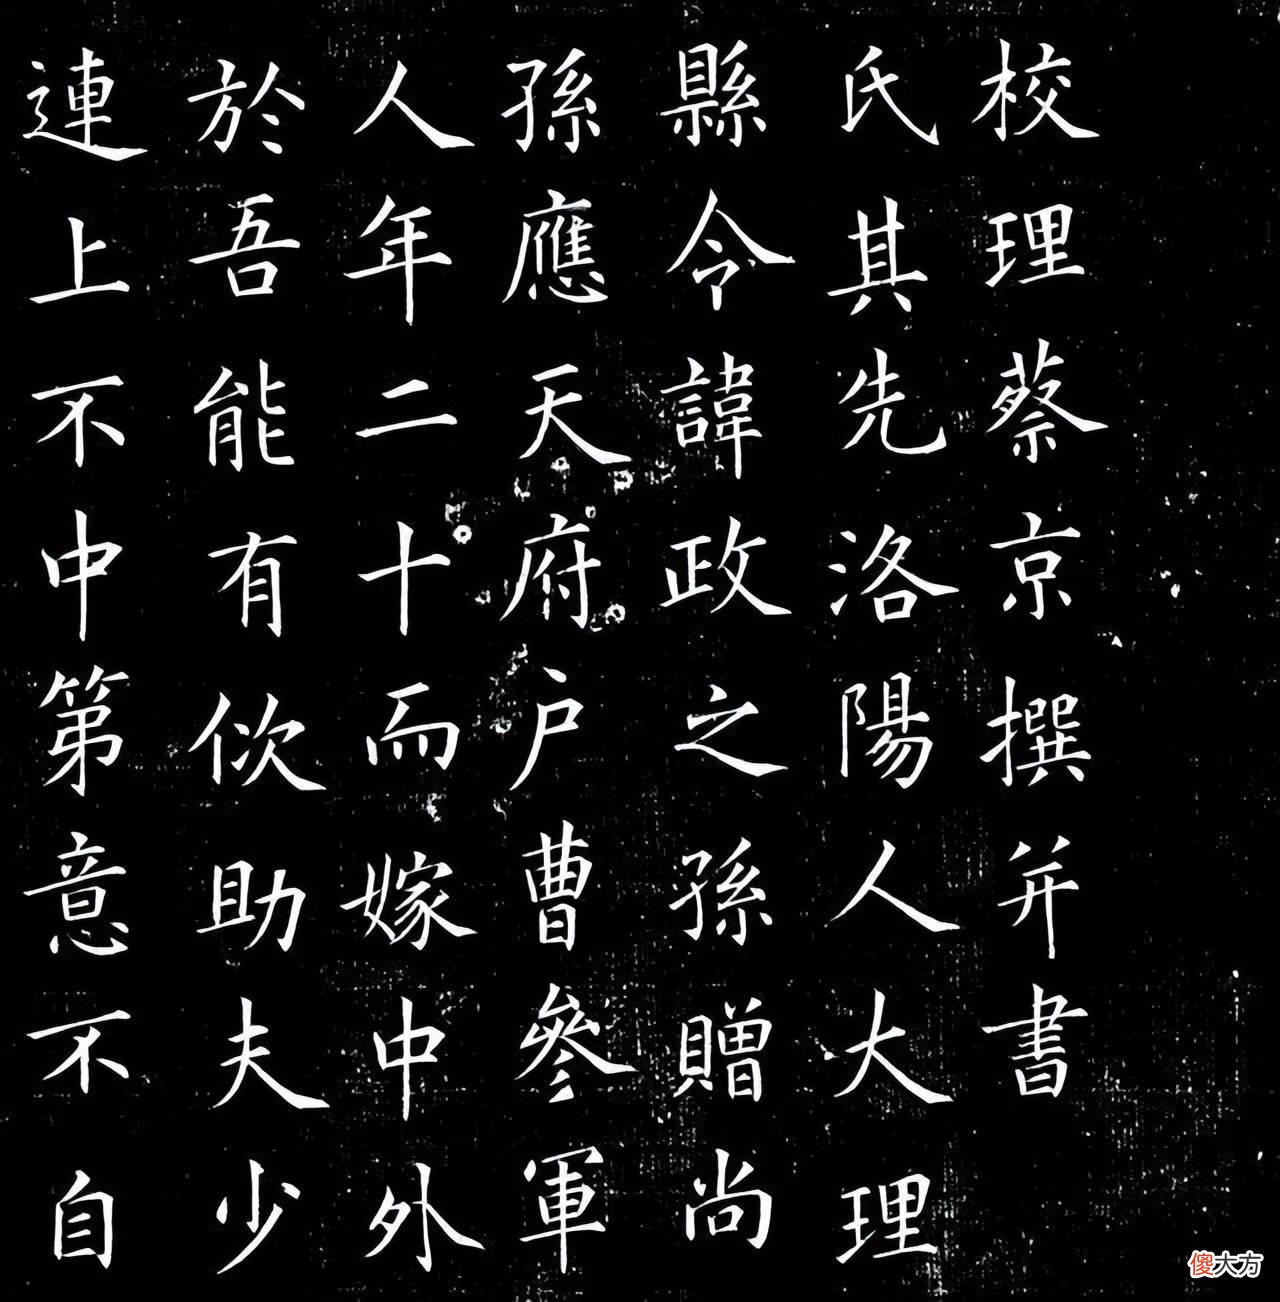 校理蔡京撰并書
氏其先洛陽人大理
縣令諱政之孫贈尚
孫應天府户曹參軍
人年二十而嫁中外
於吾能有佽助夫少
連上不中第意不自
傻大方